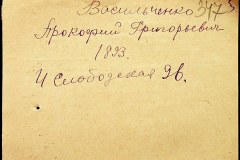 Васильченко 347
Прокофий Григорьевич
1893.
4 Слободская 9в.